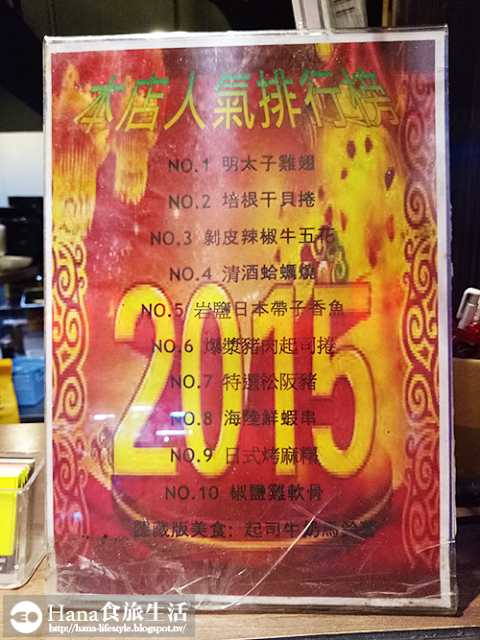 本店人氣排行榜
NO.1 明太子雞翅
NO.2 培根干貝捲
NO.3 剝皮辣椒牛五花
NO.4 清酒蛤蠣燒
NO.5 岩鹽日本帶子香魚
NO.6 爆漿豬肉起司捲
NO.7 特選松阪豬
NO.8 海陸鮮蝦串
NO.9 日式烤麻糬
NO.10 椒鹽雞軟骨
隱藏版美食：起司牛奶馬鈴薯
2015
Hana食旅生活
http://hana-lifestyle.blogspot.tw/